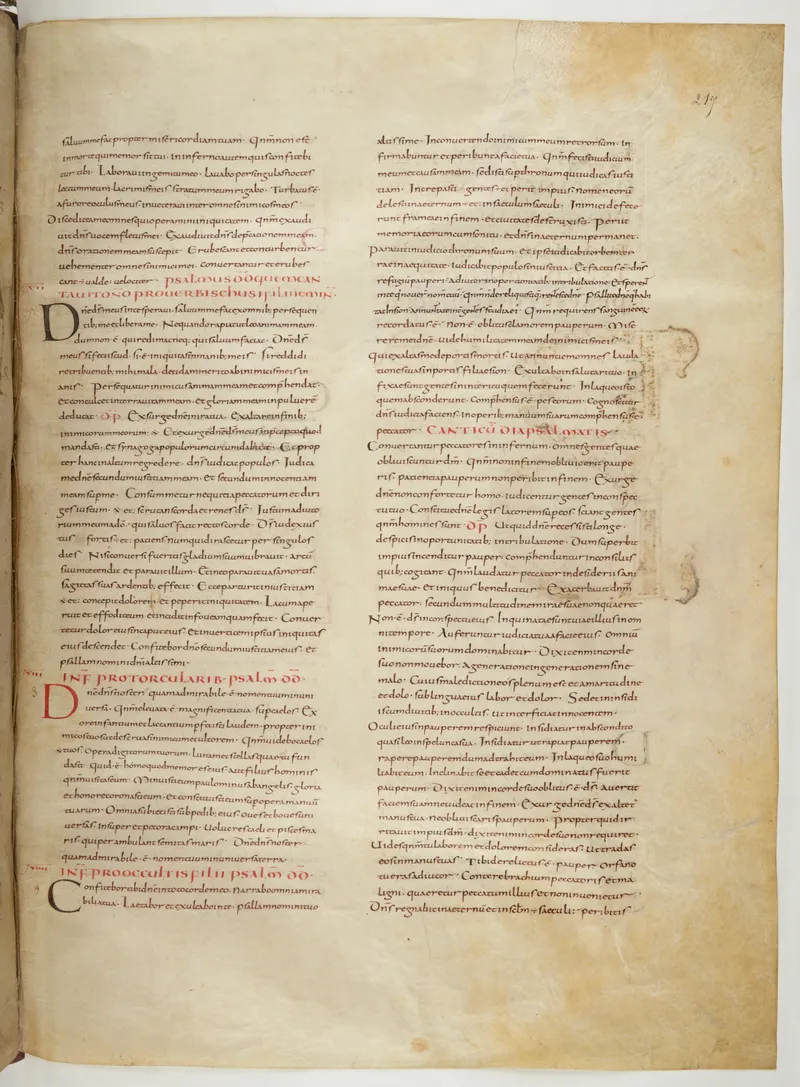 219
saluummefacpropter misericordiamtuam · Qnm̄non est
inmortequimemor sittui · ininfernoautemquisconfitebi
tur tibi · Laborauiingemitumeo · Lauabopersingulasnoctes
lectummeum · lacrimismeis stratummeumrigabo · Turbatus ē
afuroreoculusmeus inueterauiinteromnesinimicosmeos ·
Discediteamemomnesquioperaminiiniquitatem · qnm̄exaudi
uitdn̄suocemfletusmei · Exaudiuitdn̄sdeprecationemmeam ·
dn̄sorationemmeamsuscepit · Erubescantetconturbentur
uehementer omnesinimicimei · conuertantur eterubes
cant ualde uelociter · PSALMUS DD QUEM CAN
TAUIT DNO PRO UERBIS CHUSI FILII IEMIN ·
Dn̄ed̄smeusintesperaui · saluummefacexomnib; persequen
tib; meetliberame · Nequandorapiatutleoanimammeam ·
dumnon ē quiredimatneq; quisaluumfaciat · Dn̄ed̄s
meus sifecistud · si ē iniquitasinmanib; meis · sireddidi
retribuentib; mihimala · decidammeritoabinimicismeisin
anis · Persequaturinimicusanimammeametcomp̄hendat ·
etconculcetinterrauitammeam · etgloriammeaminpuluerē
deducat · DP Exsurgedn̄einiratua · Exaltareinfinib;
inimicorummeorum · Etexurgedn̄ed̄smeusinp̄ceptoquod
mandasti · etsynagogapopulorumcircumdabitte · Etprop
ter hancinaltumregredere · dn̄siudicatpopulos · Iudica
medn̄esecundumiustitiammeam · etsecunduminnocentiam
meamsup̄me · Consummeturnequitiapeccatorum etdiri
gesiustum · etscrutanscordaetrenesd̄s · Iustumadiuto
riummeumad̄no · quisaluosfacit rectoscorde · D̄siudexius
tus fortis et patiens numquidirascetur persingulos
dies · Nisiconuersi fueritisgladiumsuumuibrauit · arcū
suumtetendit etparauitillum · Etineoparauituasamortis
sagittassuasardentib; effecit · Ecceparturitiniustitiam
concepitdolorem · etpeperitiniquitatem · Lacumape
ruit eteffoditeum · etinciditinfoueamquamfecit · Conuer
teturdoloreiusincaputeius · Etinuerticemipsiusiniquitas
eiusdescendet · Confitebordn̄osecundumiustitiameius · Et
psallamnominidn̄ialtissimi ·
IN F PRO TORCULARIB· PSALM DD ·
Dn̄edn̄snoster quamadmirabile · ē · nomentuuminuni
uersa · Qnm̄eleuata · ē · magnificentiatua · sup̄caelos · Ex
oreinfantiumet lactantiump̄fecistilaudem · propter ini
micostuos utdestruasinimicumetultorem · Qnm̄uidebocaelos
tuos · Operadigitorumtuorum · lunametstellasquaetufun
dasti · Quid · ē · homoquodmemoreseius · Autfilius hominis
qnm̄uisitaseum · Minuistieumpaulominusabangelis · gloria
ethonorecoronastieum · Etconstituistieumsup̄operamanuū
tuarum · Omniasubiecistisubpedib; eius · ouesetbouesuni
uersas · insuper etpecoracampi · Uolucrescaeli etpiscesma
ris · quiperambulant semitasmaris · Dn̄edn̄snoster
quamadmirabile · ē · nomentuuminuniuersaterra ·
IN F PRO OCCULTIS FILII PSALM DD ·
Confitebortibidn̄eintotocordemeo · Narraboomniamira
biliatua · Laetabor etexultabointe · psallamnominituo
altissime · Inconuertendoinimicummeumretrorsum · In
firmabuntur etperibuntafacietua · Qnm̄fecistiiudicium
meumetcausammeam · sedistisup̄thronumquiiudicasiustiti
tiam · Increpasti gentes · etperiit impius · nomeneorū
delestiinaeternum · et insaeculumsaeculi · Inimicidefece
runt frameaeinfinem · etciuitatesdestruxisti · Periit
memoriaeorumcumsonitu · etdn̄sinaeternumpermanet ·
Parauitiniudiciothronumsuum · Etipseiudicabitorbemter
raeinaequitate · iudicabitpopulosiniustitia · Etfactus · ē · dn̄s
refugiūpauperi · adiutorinoportunitatib; intribulatione · Etsperent
intequinouer̄nomentuū qnm̄nondereliquistiq̄rentestedn̄e · Psallitedn̄oquihabi
tatinsion annuntiateint̄gentesstudiaei · Qnm̄requirenssanguinēeoꝝ
recordatus · ē · Non · ē · oblitusclamorempauperum · Mise
reremeidn̄e · uidehumilitatemmeamdeinimicismeis
Quiexaltasmedeportismortis · Utannuntiemomnes lauda
tionestuasinportisfiliaesion · Exultaboinsalutarituo · In
fixaesuntgentesininterituquemfecerunt · Inlaqueoisto
quemabsconderunt · Comp̄hensus · ē · pes eorum · Cognoscetur
dn̄siudiciafaciens · inoperib; manuumsuarumcomp̄hensus ē
peccator · CANTICŪ DIAPSALMATIS ·
Conuertantur peccatoresininfernum · omnesgentesquae
obliuiscunturdm̄ · Qnm̄noninfinemobliuioerit paupe
ris · patientiapauperumnonperibit infinem · Exurge
dn̄enonconfortetur homo · iudicentur gentesinconspec
tutuo · Constituedn̄elegislatoremsup̄eos · sciantgentes
qnm̄hominessunt DP Utquiddn̄erecessistilonge ·
despicisinoportunitatib; intribulatione · Dumsuperbit
impiusincenditurpauper · comp̄hendunturinconsiliis
quib; cogitant · Qnm̄laudatur peccatorindesideriisani
maesuae · Etiniquus benedicitur · Exacerbauitdnm̄
peccator · secundummultitudinemiraesuaenonquaeret
Non · ē · d̄sinconspectueius · Inquinataesuntuiaeilliusinom
nitempore · Auferuntur iudiciatuaafacieeius · Omniū
inimicorūsuorumdominabitur · Dixitenimincorde
suononmouebor · Ageneratione ingenerationemsine
malo · Cuiusmaledictioneosplenum est etamaritudine
etdolo · sublinguaeius labor etdolor · Sedetininsidi
iscumdiuitib; inoccultis · utinterficiatinnocentem ·
Oculieiusinpauperemrespiciunt · Insidiatur inabscondito
quasileoinspeluncasua · Insidiatur utrapiatpauperem ·
raperepauperemdumadtrahiteum · Inlaqueosuohumi
liabiteum · Inclinabitseetcadetcumdominatusfuerit
pauperum · Dixitenimincordesuooblitus · ē · d̄s · Auertit
faciemsuamneuideatinfinem · Exurgedn̄ed̄sexaltet̄
manustua · neobliuiscarispauperum · Propterquidir
ritauitimpiusdm̄ · dixitenimincordesuononrequiret ·
Uidesqnm̄tulaboremetdoloremconsideras · Uttradas
eosinmanustuas · Tibiderelictus · ē · pauper · Orfano
tuerisadiutor · Conterebrachiumpeccatorisetma
ligni · quaeretur peccatumillius etnoninuenietur
Dn̄sregnabitinaeternūetinscl̄m saeculi · peribitis